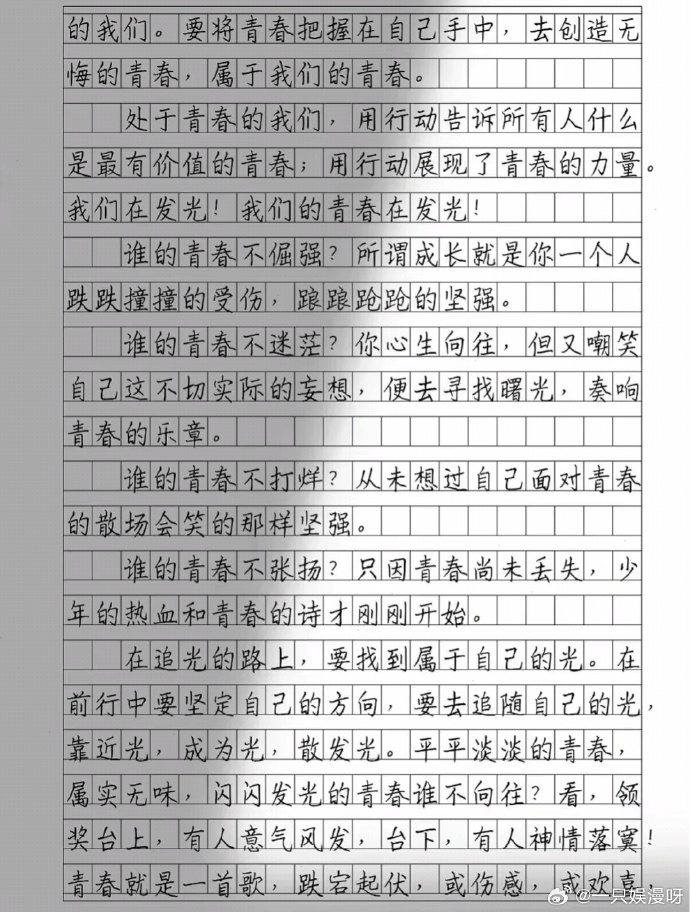 的我们。要将青春把握在自己手中，去创造无
悔的青春，属于我们的青春。
处于青春的我们，用行动告诉所有人什么
是最有价值的青春；用行动展现了青春的力量。
我们在发光！我们的青春在发光！
谁的青春不倔强？所谓成长就是你一个人
跌跌撞撞的受伤，踉踉跄跄的坚强。
谁的青春不迷茫？你心生向往，但又嘲笑
自己这不切实际的妄想，便去寻找曙光，奏响
青春的乐章。
谁的青春不打烊？从未想过自己面对青春
的散场会笑的那样坚强。
谁的青春不张扬？只因青春尚未丢失，少
年的热血和青春的诗才刚刚开始。
在追光的路上，要找到属于自己的光。在
前行中要坚定自己的方向，要去追随自己的光，
靠近光，成为光，散发光。平平淡淡的青春，
属实无味，闪闪发光的青春谁不向往？看，领
奖台上，有人意气风发，台下，有人神情落寞！
青春就是一首歌，跌宕起伏，或伤感，或欢喜，
@一只娱漫呀